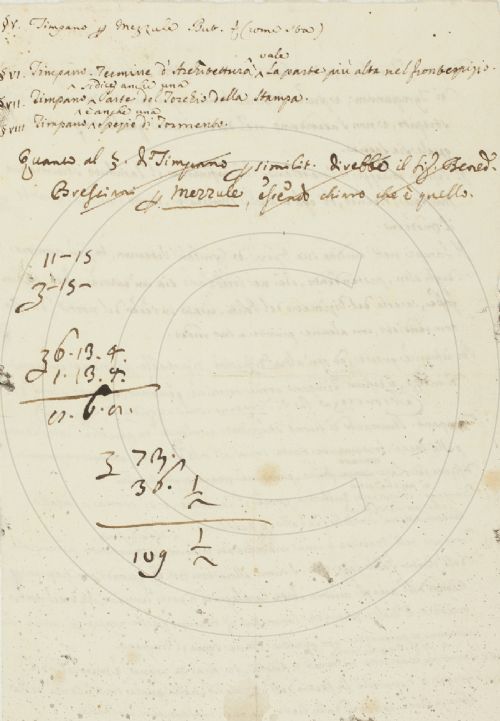 §V. Timpano p Mezzule But. (come sta)
vale
§VI. Timpano Termine d'Architettura La parte più alta nel frontespizio.
si dice anche una
§VII. Timpano Parte del Torchio della Stampa.
è anche una
§VIII Timpano specie di Tormento.
Quanto al §. di Timpano p similit. direbbe il Sig. Bened.
Bresciani p Mezzule, essendo chiaro che è quello.
11-15
3-15-
36.13.4.
1.13.4.
0.6.0.
3 73.
36. 1/2
109 1/2